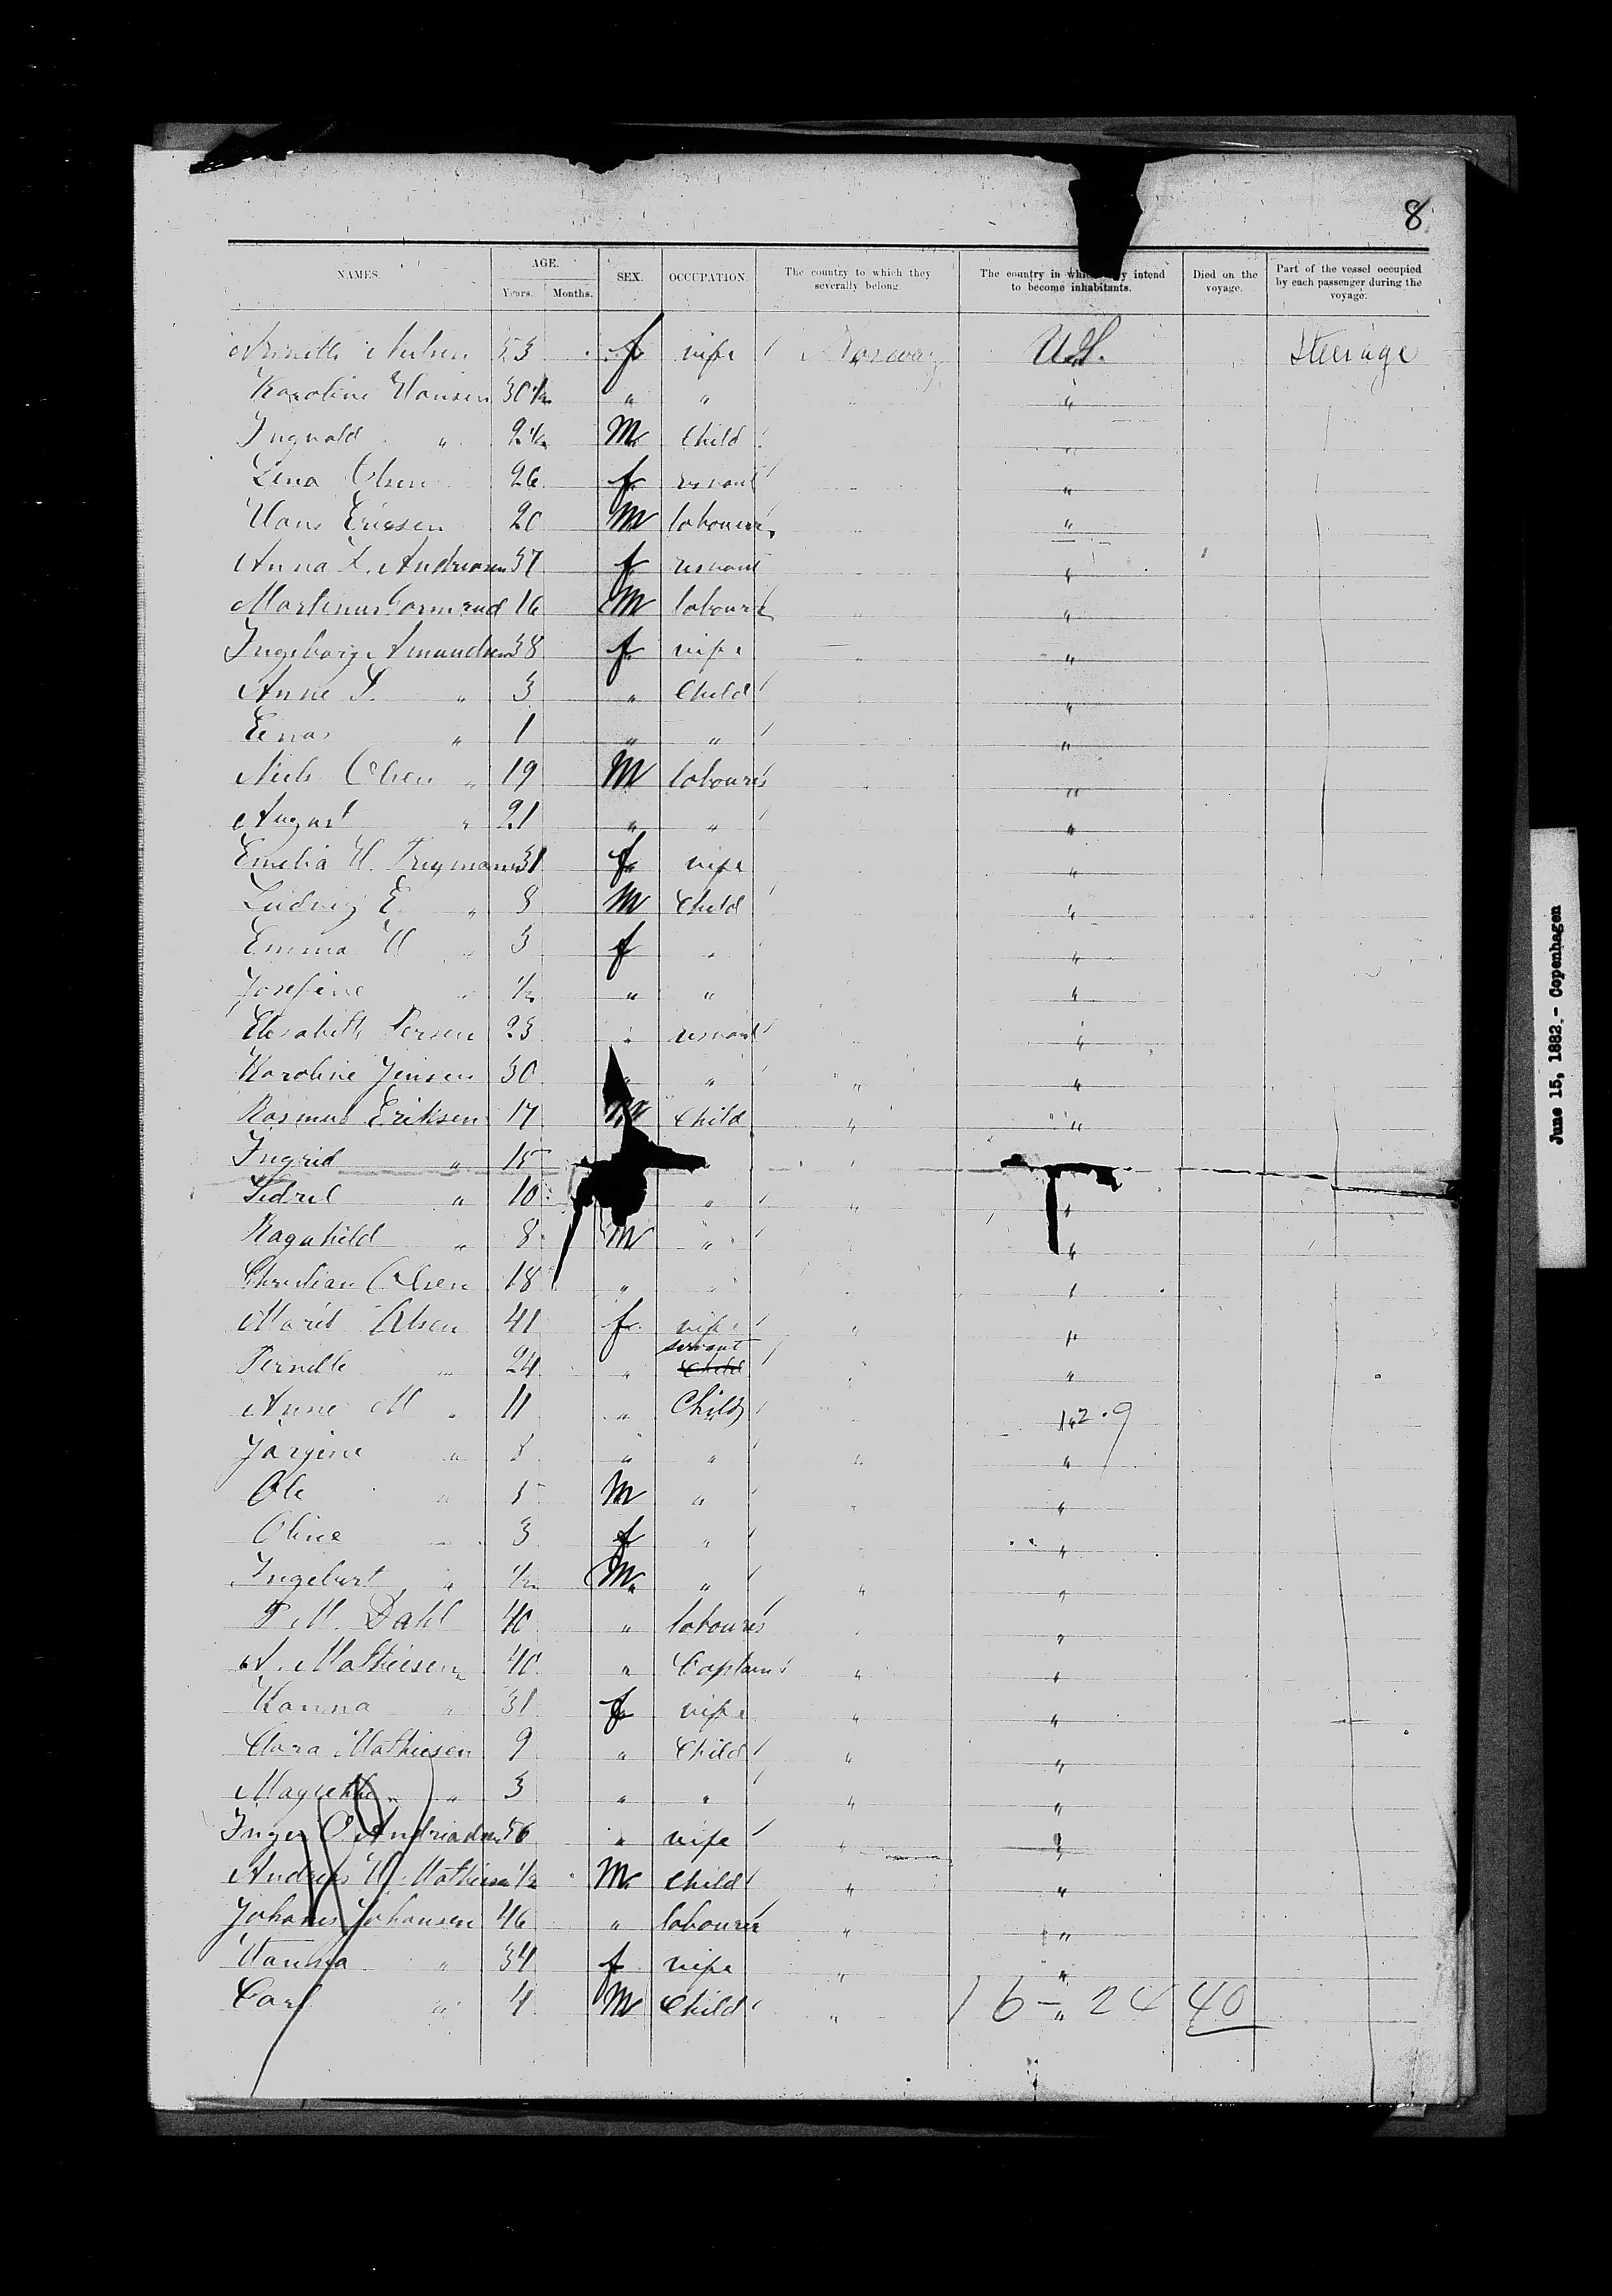 8
NAMES. AGE. Years. Months. SEX. OCCUPATION. The country to which they severally belong. The country in which they intend to become inhabitants. Died on the voyage. Part of the vessel occupied by each passenger during the voyage.
53 f wife Norway U.S. Steerage
Karoline Hansen 30 " " "
Ingvald " 2 M Child "
Lena Olsen 26 f servant "
Hans Ericsen 20 M labourer "
Anna L. Andriasen 37 f servant "
Martinus 16 M labourer "
Ingeborg Amundsen 38 f wife "
Anne " 3 " Child "
" 1 " " "
Niels Olsen " 19 M labourer "
August " 21 " " "
Emelia H. 31 f wife "
Ludvig E. " 8 M Child "
Emma H " 3 f " "
Josefine " 1/2 " " "
Elisabeth Persen 23 " servant "
Karoline Jensen 30 " " " "
Rasmus Eriksen 17 M Child " "
Ingrid " 15 "
" 10 " " "
Ragnhild " 8 M " "
Christian Olsen 18 " " "
Marit Olsen 41 f wife " "
Pernille " 24 " servant Child "
Anne M " 11 " Child
" " " " "
Ole " 5 M " "
Oline " 3 f " "
Ingebert " 1/2 M " " "
Dahl 40 " labourer "
Mathiesen 40 " Captain " "
Hanna " 31 f wife " "
Clara Mathiesen 9 " Child " "
" 3 " " " "
Inger Andriadsen 56 " wife " "
Andreas H. Mathiesen 1/2 M Child " "
Johanes Johansen 46 " labourer " "
" 34 f wife " "
Carl " 4 M Child " "
16 - 24 40
June 15, 1882.- Copenhagen